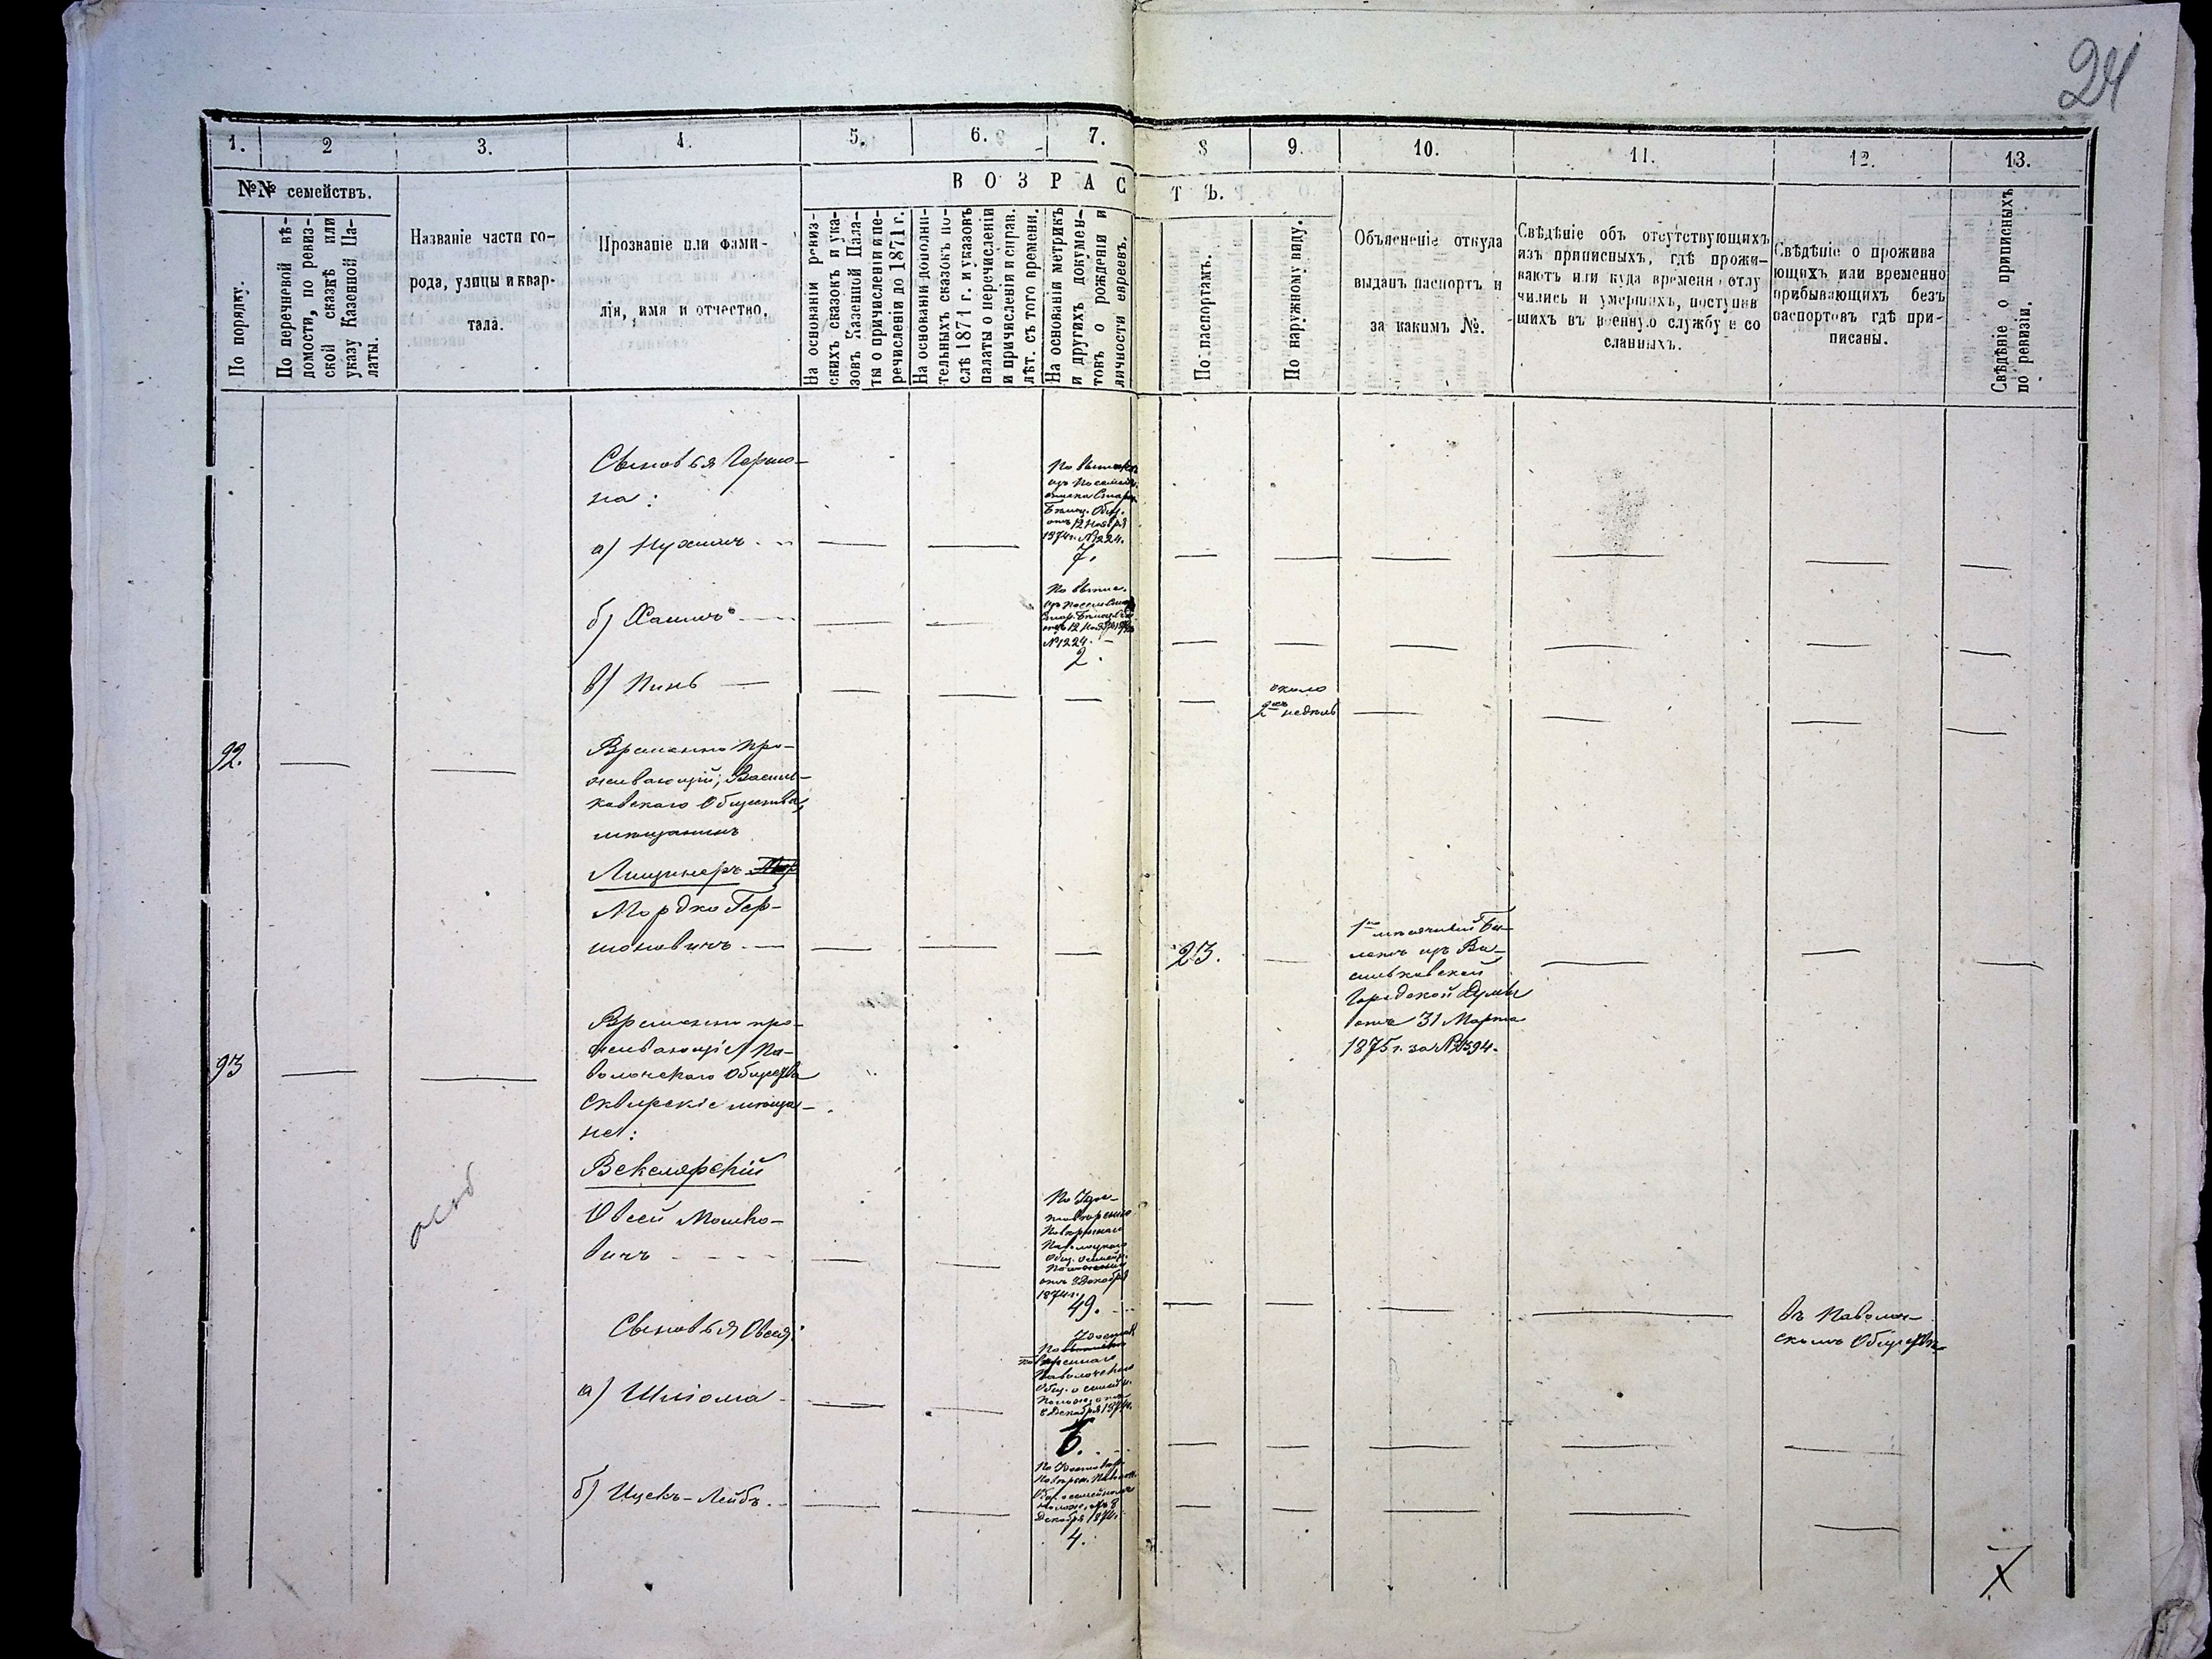 24
1. 2 3. 4. 5. 6. 7. 8 9. 10. 11. 12. 13.
№№ семействъ.
В О З Р А С Т Ъ.
По порядку.
По перечневой вѣ-
домости, по ревиз-
ской сказкѣ или
указу Казенной Па-
латы.
Названіе части го-
рода, улицы и квар-
тала.
Прозваніе или фами-
лія, имя и отчество.
На основаніи ревиз-
скихъ сказокъ и ука-
зовъ Казенной Пала-
ты о причисленіи и пе-
речисленіи до 1871 г.
На основаніи дополни-
тельныхъ сказокъ по-
слѣ 1871 г. и указовъ
палаты о перечисленіи
и причисленіи и справ.
лѣт. съ того времени.
На основаніи метрикъ
и другихъ докумен-
товъ о рожденіи и
личности евреевъ.
По паспортамъ.
По наружному виду.
Объясненіе откуда
выданъ паспортъ и
за какимъ №.
Свѣдѣніе объ отсутствующихъ
изъ приписныхъ, гдѣ прожи-
ваютъ или куда временно отлу
чились и умершихъ, поступив
шихъ въ военную службу и со
сланныхъ.
Свѣдѣніе о прожива
ющихъ или временно
прибывающихъ безъ
паспортовъ гдѣ при-
писаны.
Свѣдѣніе о приписныхъ
по ревизіи.
Сыновья Гершо-
на:
а) Нухимъ
отъ 12 Ноября
1874 г. №1224.
7.
б) Хаимъ
№1224.
2.
в) Пинь
около
2хъ недѣль
92.
Временно про-
живающій, Василь-
ковскаго Общества,
мѣщанинъ
Лищинеръ
Мордко Гер-
шоновичъ
23.
1но мѣсячный Би-
летъ изъ Ва-
сильковской
Городской Думы
отъ 31 Марта
1875 г. за №394.
93
Временно про-
живающіе Па-
волочскаго Общества
Сквирскіе мѣща-
не:
Векслярскій
Овсей Мошко-
вичъ
отъ 8 Декабря
1874 г.
49.
въ Паволоч-
скомъ Обществѣ
Сыновья Овсея:
а) Шлiома
8 Декабря 1874.
6.
б) Ицекъ-Лейбъ
Декабря 1874.
4.